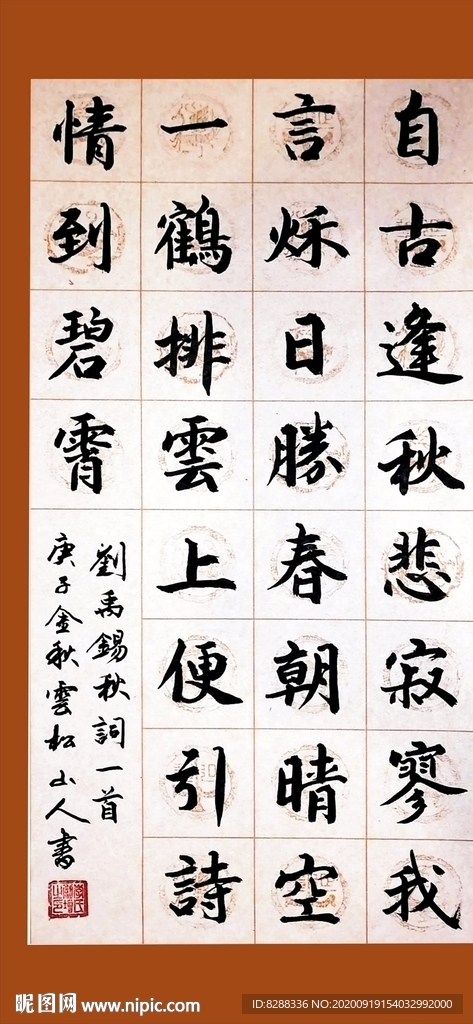 自古逢秋悲寂寥我
言秌日勝春朝晴空
一鶴排雲上便引詩
情到碧霄
劉禹錫秋詞一首
庚子金秋雲松山人書
昵图网 www.nipic.com
ID:8288336 NO:20200919154032992000